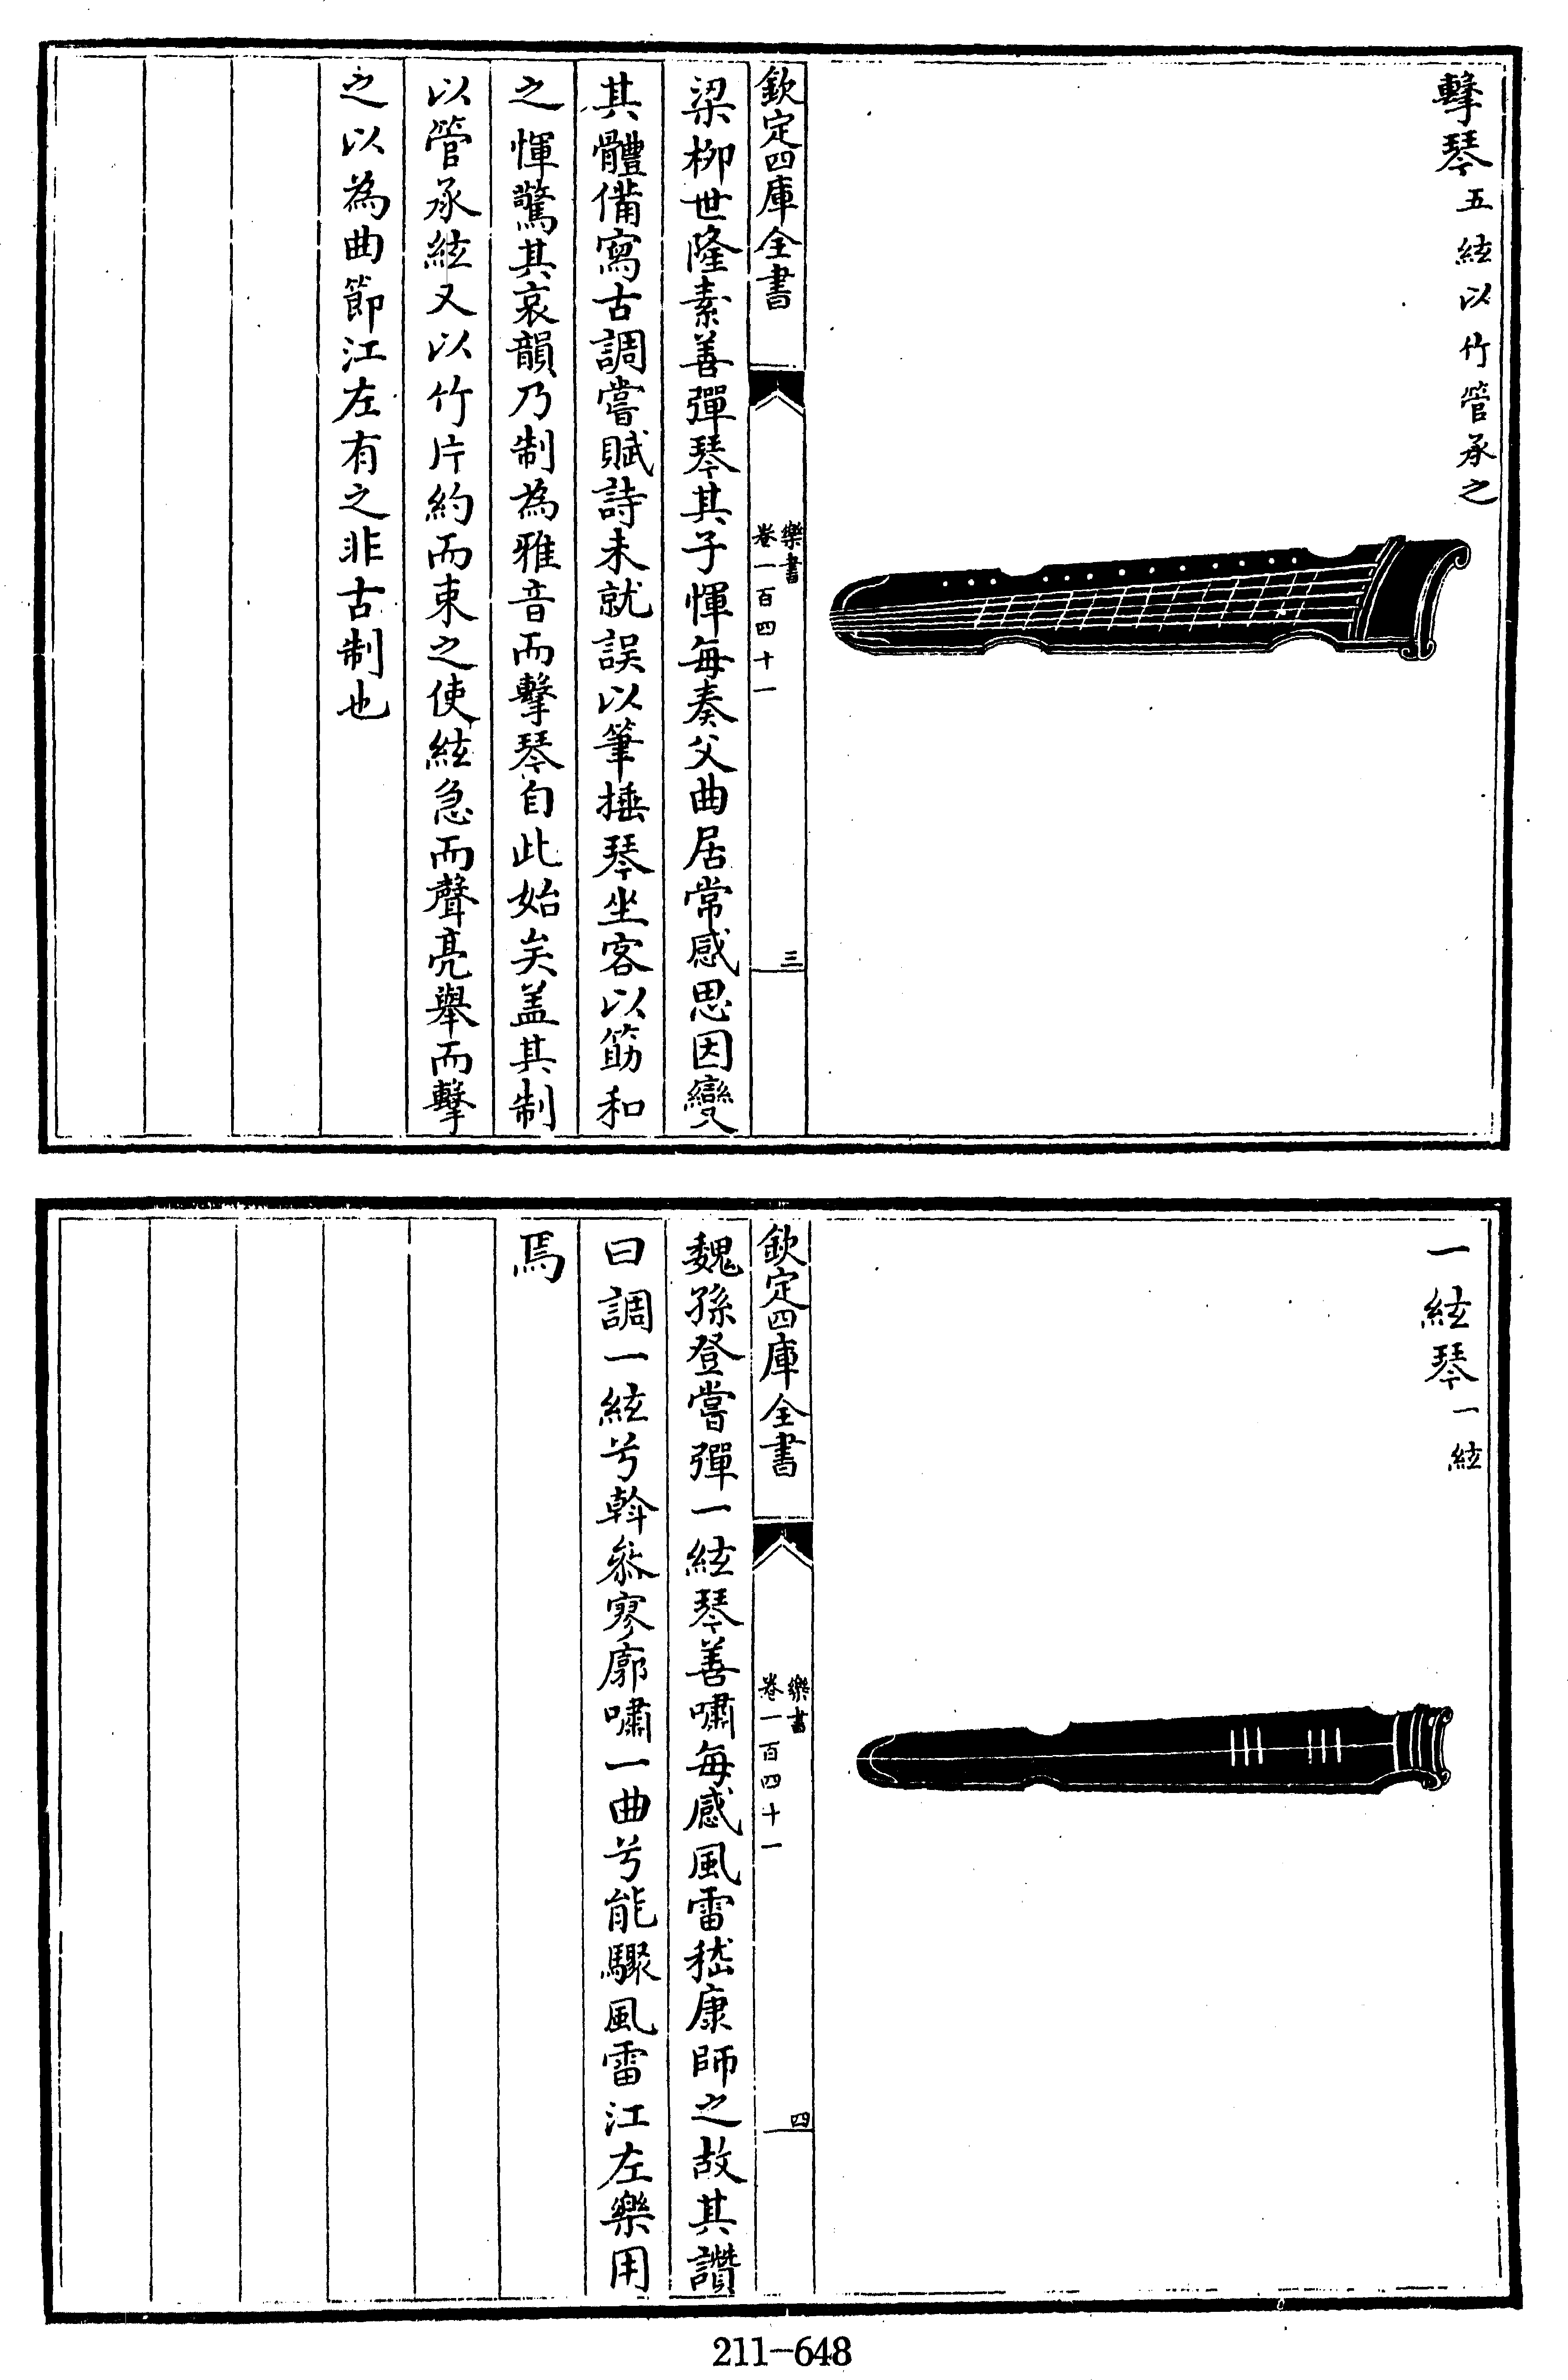 擊琴五絃以竹管承之
欽定四庫全書
樂書
卷一百四十一
三
梁栁世隆素善彈琴其子惲每奏父曲居常感思因變
其體備寫古調嘗賦詩未就誤以筆捶琴坐客以筯和
之惲驚其哀韻乃制為雅音而擊琴自此始矣盖其制
以管承絃又以竹片約而束之使絃急而聲亮舉而擊
之以為曲節江左有之非古制也
一絃琴一絃
欽定四庫全書
樂書
卷一百四十一
四
魏孫登嘗彈一絃琴善嘯每感風雷嵇康師之故其讚
曰調一絃兮斡叅寥廓嘯一曲兮能驟風雷江左樂用
焉
211-648